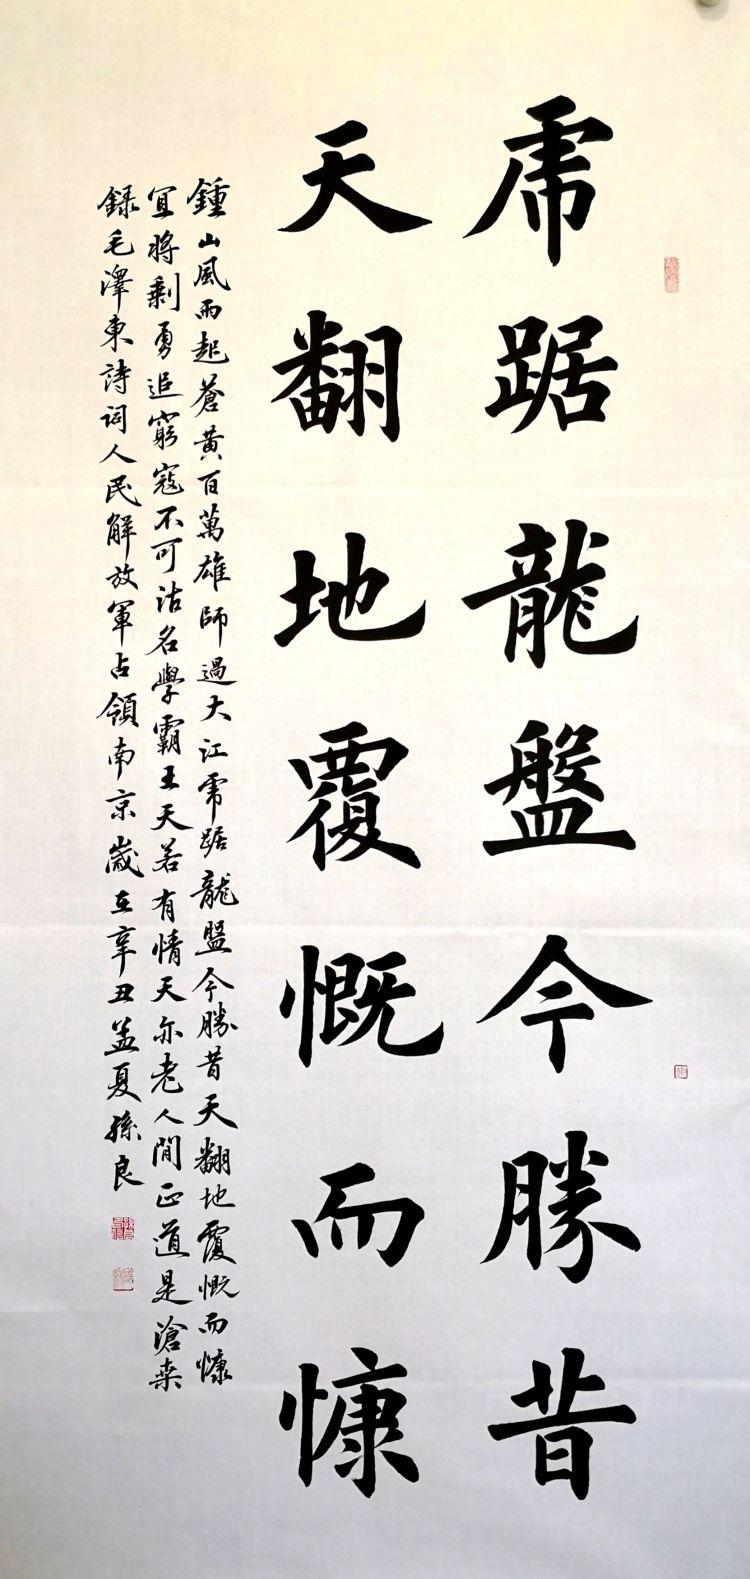 虎踞龍盤今勝昔
天翻地覆慨而慷
鍾山風雨起蒼黃百萬雄師過大江虎踞龍盤今勝昔天翻地覆慨而慷
宜將剩勇追窮寇不可沽名學霸王天若有情天亦老人間正道是滄桒
録毛澤東詩詞人民解放軍占領南京歲在辛丑孟夏孫良